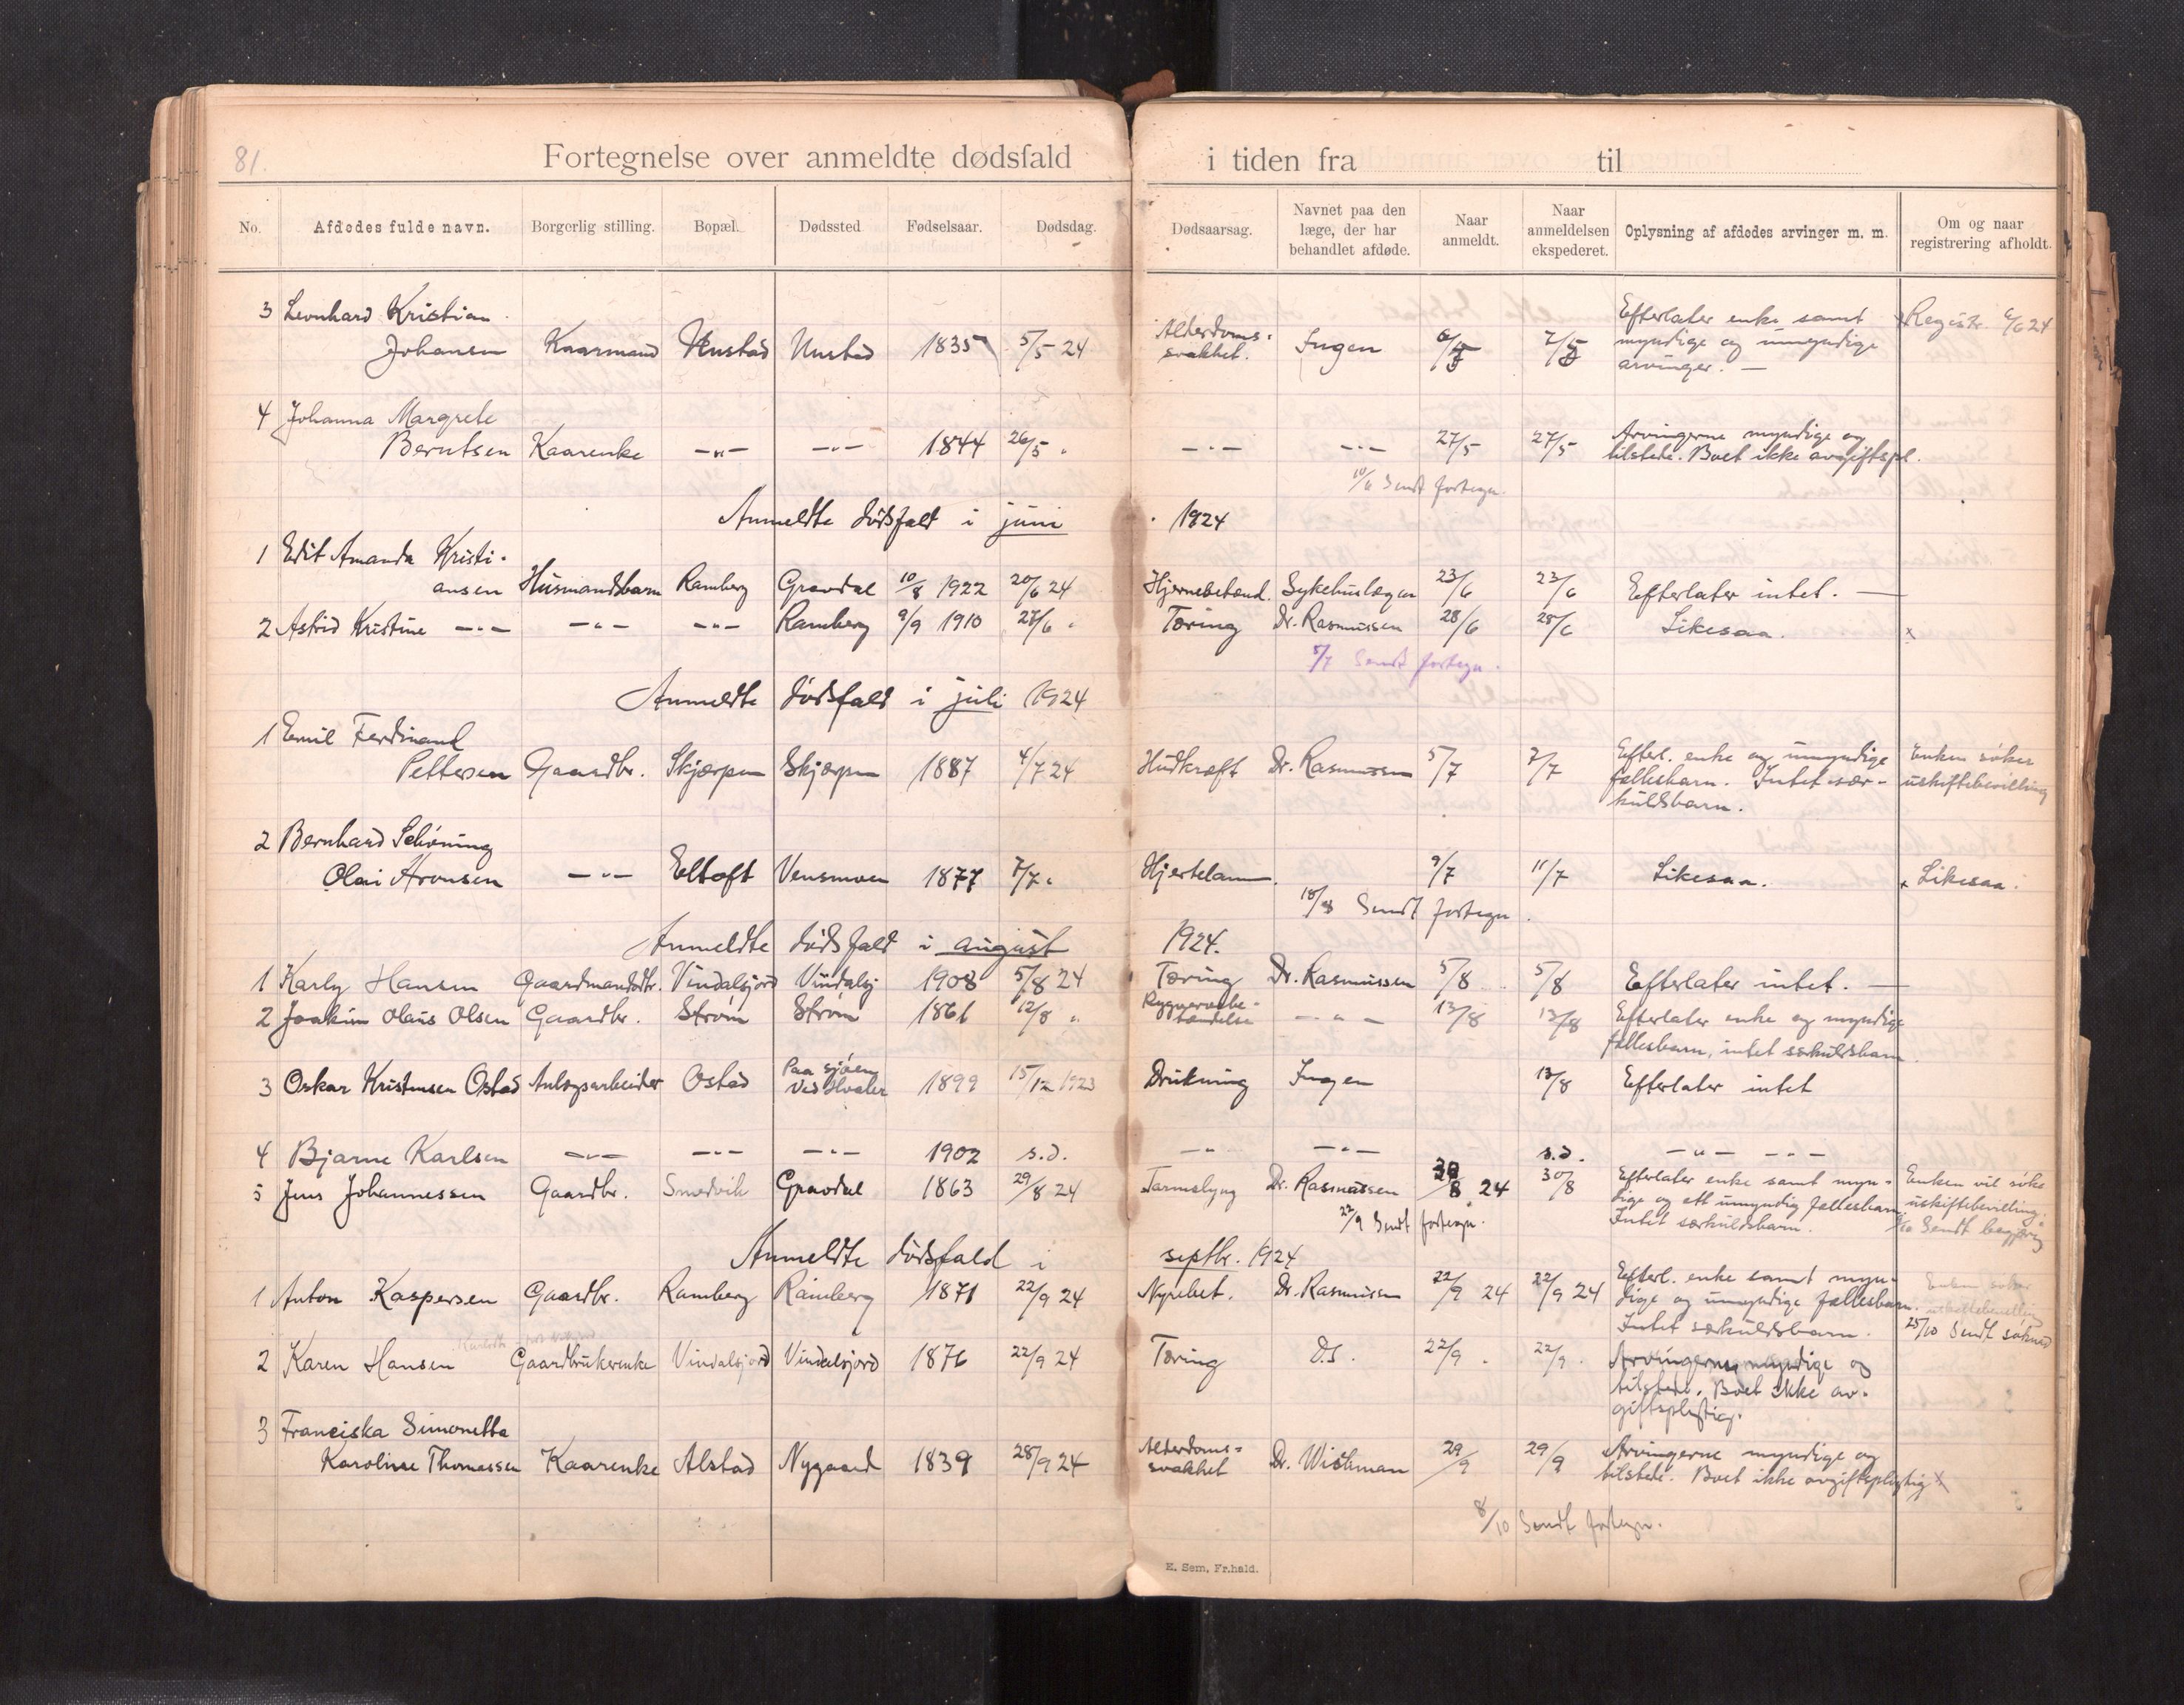 81.
Fortegnelse over anmeldte dødsfald i tiden fra til
No. Afdødes fulde navn. Borgerlig stilling. Bopæl. Dødssted Fødselsaar. Dødsdag. Dødsaarsag. Navnet paa den læge, der har behandlet afdøde. Naar anmeldt. Naar anmeldelsen ekspederet. Oplysning af afdødes arvinger m. m. Om og naar registrering afholdt.
3 Leonhard Kristian
Johansen Kaarmand Unstad Unstad 1835 5/5 24 Alderdoms-svakhet. Ingen 6/5 7/5 Efterlater enke samt myndige og umyndige arvinger. — Registr. 6/6 24
4 Johanna Margrete
Berntsen Kaarenke —"— —"— 1844 26/5 " —"— —"— 27/5 27/5 Arvingerne myndige og tilstede. Boet ikke avgiftspl.
10/6 Sendt fortegn.
Anmeldte dødsfald i juni 1924
1 Edit Amanda Kristi-
ansen Husmandsbarn Ramberg Gravdal 10/8 1922 20/6 24 Hjernebetænd. Sykehuslægen 23/6 23/6 Efterlater intet. —
2 Astrid Kristine —"— —"— —"— Ramberg 9/9 1910 27/6 " Tæring Dr. Rasmussen 28/6 28/6 Likesaa. x
5/7 Sendt fortegn.
Anmeldte dødsfald i juli 1924
1 Emil Ferdinand
Pettersen Gaardbr. Skjærpen Skjærpen 1887 4/7 24 Hudkræft Dr. Rasmussen 5/7 7/7 Efterl. enke og umyndige fællesbarn. Intet sær-kuldsbarn. Enken søker uskiftebevilling
2 Bernhard Schøning
Olai Aronsen —"— Eltoft Vensmoen 1877 7/7 " Hjertelam. 9/7 11/7 Likesaa. x Likesaa.
18/8 Sendt fortegn.
Anmeldte dødsfald i august 1924.
1 Karly Hansen Gaardmandsdtr. Vindalsjord Vindalsj 1908 5/8 24 Tæring Dr. Rasmussen 5/8 5/8 Efterlater intet. —
2 Joakim Olaus Olsen Gaardbr. Strøm Strøm 1861 12/8 " —"— 13/8 13/8 Efterlater enke og myndige fællesbarn, intet særkuldsbarn.
3 Oskar Kristensen Ostad Anlægsarbeider Ostad Paa sjøen ved Hvaler 1899 15/12 1923 Drukning Ingen 13/8 Efterlater intet
4 Bjarne Karlsen —"— —"— —"— 1902 s.d. —"— —"— s.d. —"— —"—
5 Jens Johannessen Gaardbr. Smedvik Gravdal 1863 29/8 24 Tarmslyng Dr. Rasmussen 30/8 24 30/8 Efterlater enke samt myn-dige og ett umyndig fællesbarn. Intet særkuldsbarn. Enken vil søke uskiftebevilling. Sendt begjæring
22/9 Sendt fortegn.
Anmeldte dødsfald i septbr. 1924
1 Anton Kaspersen Gaardbr. Ramberg Ramberg 1871 22/9 24 Nyrebet. Dr. Rasmussen 22/9 24 22/9 24 Efterl. enke samt myn-dige og umyndige fællesbarn. Intet særkuldsbarn. Enken søker uskiftebevilling 25/10 Sendt søknad
2 Karen Hansen Gaardbrukerenke Vindalsjord Vindalsjord 1876 22/9 24 Tæring D.s. 22/9 . 22/9 . Arvingerne myndige og tilstede. Boet ikke av-giftspligtig.
3 Franciska Simonetta
Karoline Thomassen Kaarenke Alstad Nygaard 1839 28/9 24 Alderdoms-svakhet Dr. Wishman 29/9 29/9 Arvingerne myndige og tilstede. Boet ikke avgiftspligtig x
8/10 Sendt fortegn.
E. Sem, Fr.hald.